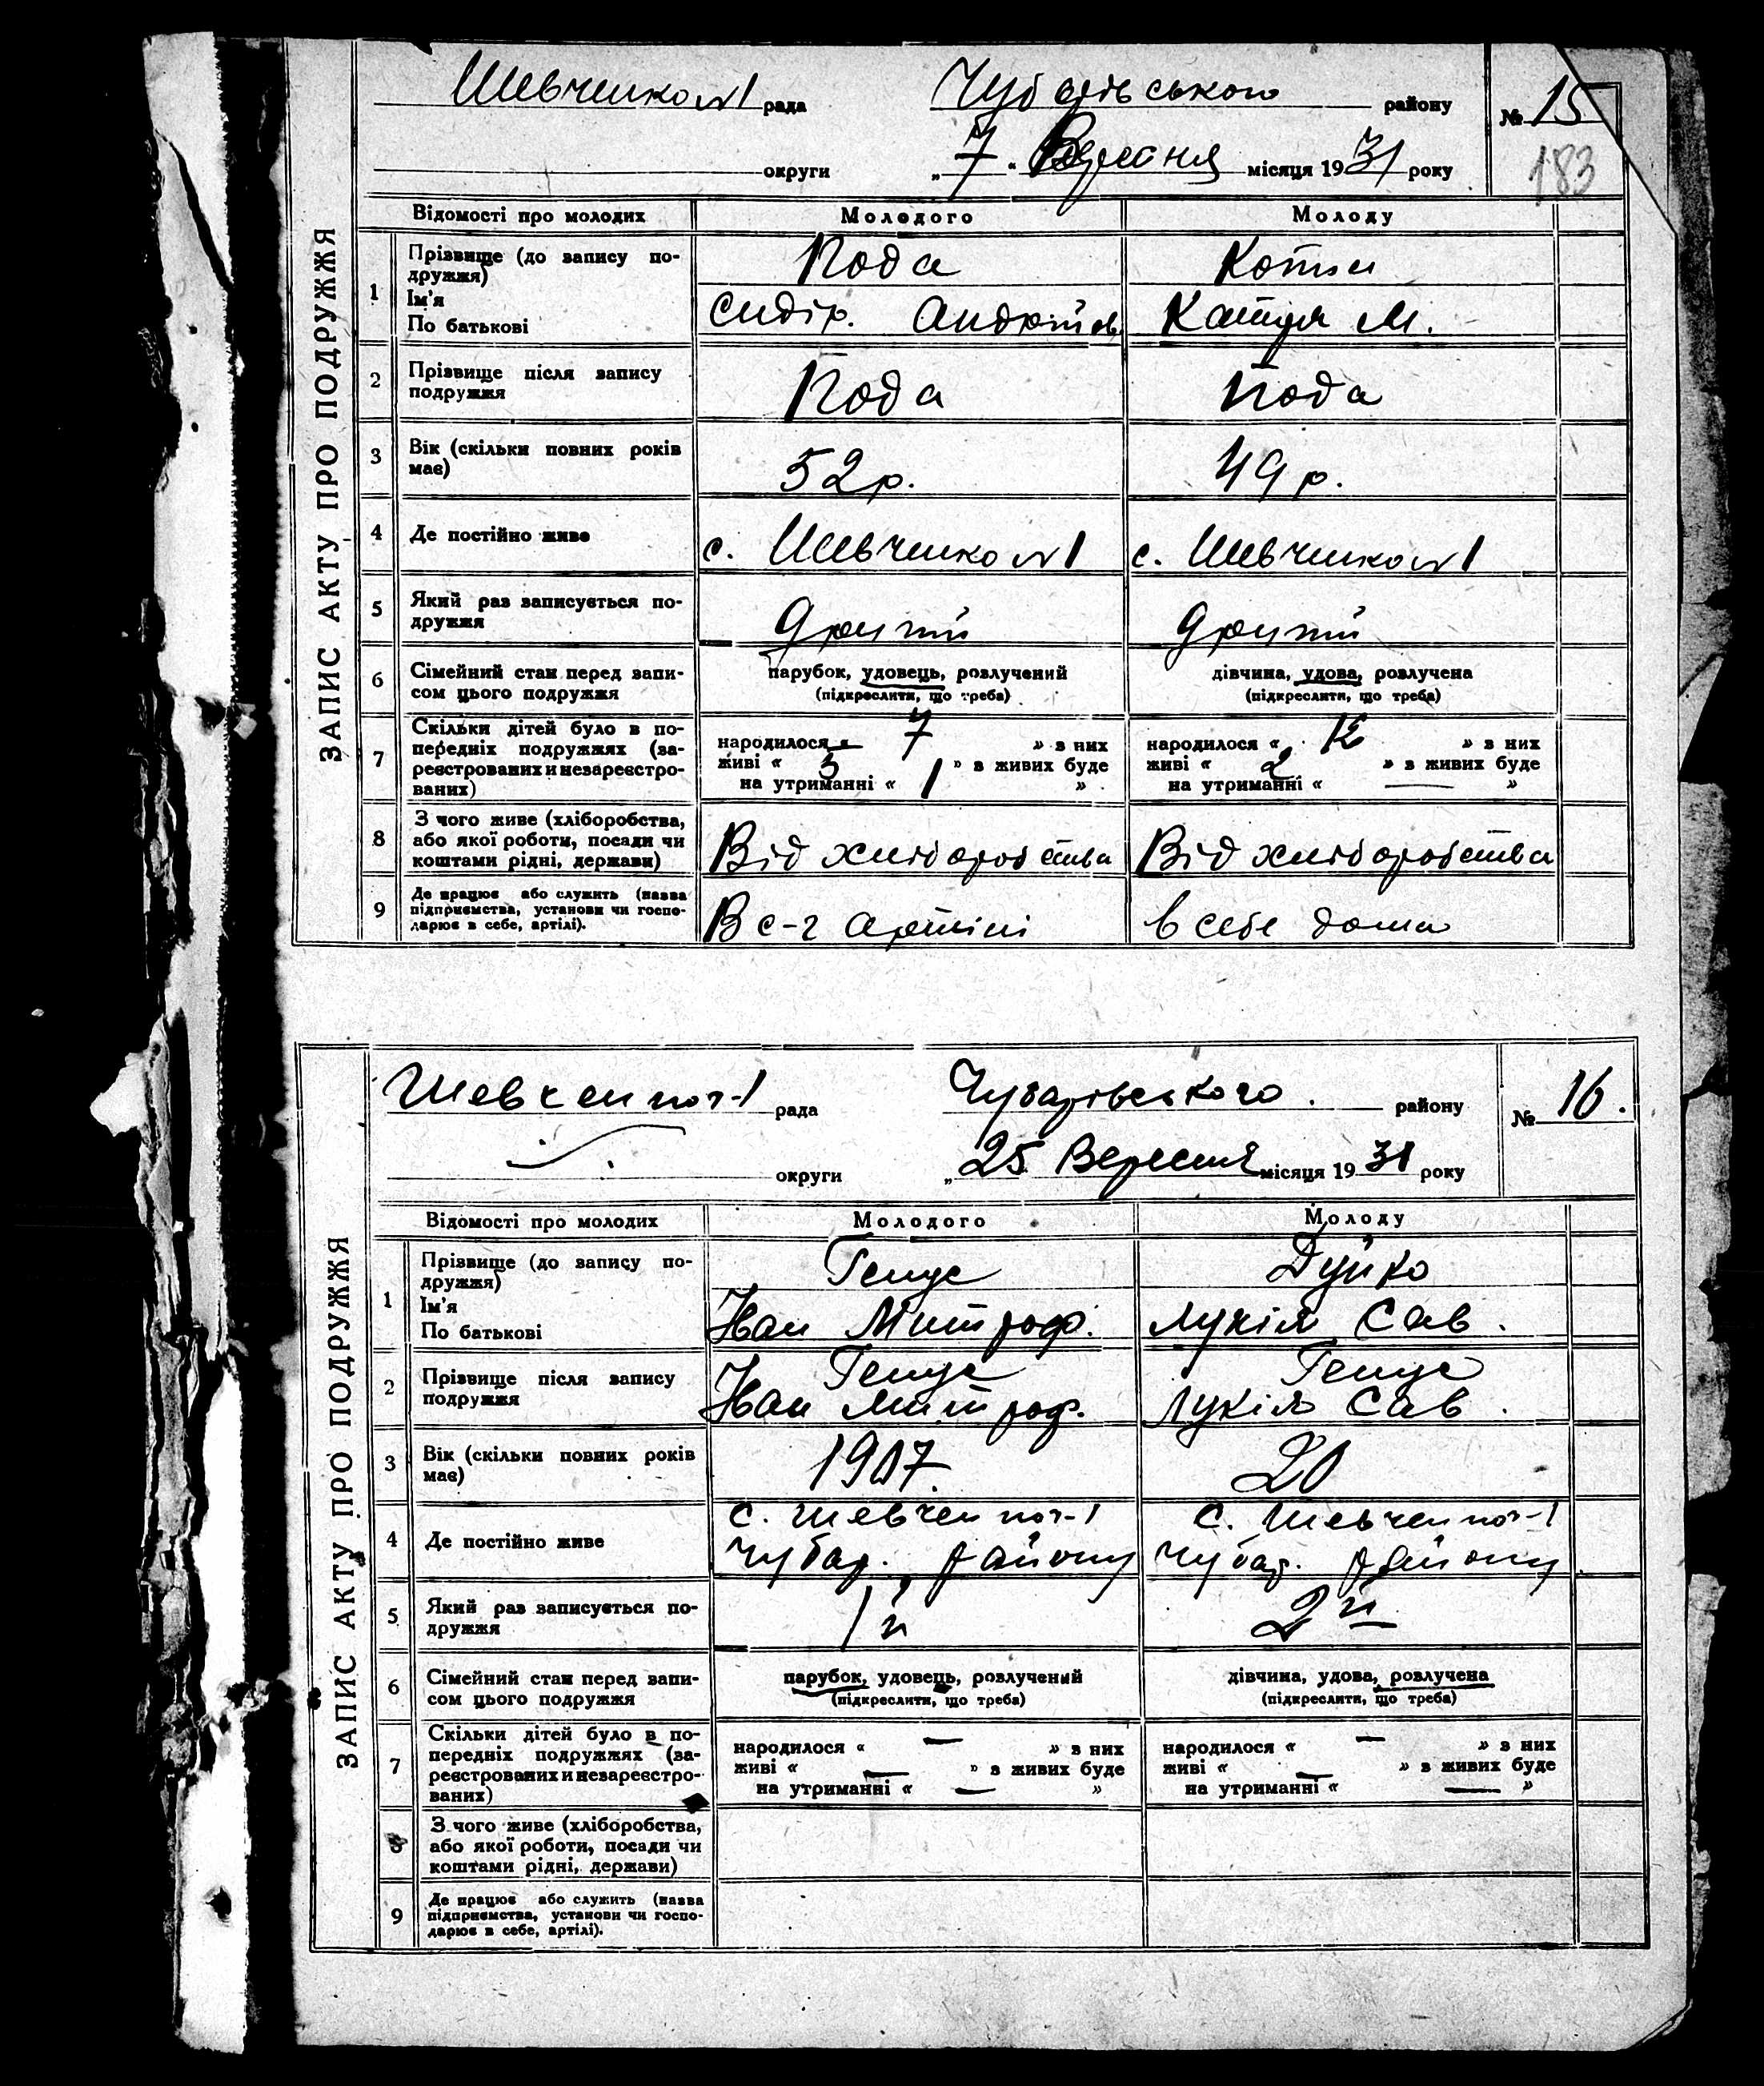 Шевченко №1 рада Чубарівського району № 15
округи „7" Вересня місяця 1931 року
183
ЗАПИС АКТУ ПРО ПОДРУЖЖЯ
Відомості про молодих Молодого Молоду
1 Прізвище (до запису по-
дружжя) Пода
Ім'я
По батькові Сидір. Андрійов. М.
2 Прізвище після запису
подружжя Пода Пода
3 Вік (скільки повних років
має) 52р. 49р.
4 Де постійно живе с. Шевченко №1 с. Шевченко №1
5 Який раз записується по-
дружжя Другий Другий
6 Сімейний стан перед запи-
сом цього подружжя парубок, удовець, розлучений дівчина, удова, розлучена
(підкреслити, що треба) (підкреслити, що треба)
7 Скільки дітей було в по-
передніх подружжях (за-
реєстрованих и незареєстро-
ваних)
народилося « 7 » з них народилося « 12 » з них
живі « 3 » з живих буде живі « 2 » з живих буде
на утриманні « 1 » на утриманні « — »
8 З чого живе (хліборобства,
або якої роботи, посади чи
коштами рідні, держави) Від хліборобства Від хліборобства
9 Де працює або служить (назва
підприємства, установи чи госпо-
дарює в себе, артілі). В с-г артілі в себе дома
Шевченког-1 рада Чубарівського району № 16.
округи „25 Вересня місяця 1931 року
ЗАПИС АКТУ ПРО ПОДРУЖЖЯ
Відомості про молодих Молодого Молоду
1 Прізвище (до запису по-
дружжя) Генус Дуйко
Ім'я
По батькові Іван Митроф. Лукія Сав.
2 Прізвище після запису
подружжя Генус Генус
Іван Митроф. Лукія Сав.
3 Вік (скільки повних років
має) 1907. 20
4 Де постійно живе с. Шевченког-1 с. Шевченког-1
Чубар. району Чубар. району
5 Який раз записується по-
дружжя 1й 2й
6 Сімейний стан перед запи-
сом цього подружжя парубок, удовець, розлучений дівчина, удова, розлучена
(підкреслити, що треба) (підкреслити, що треба)
7 Скільки дітей було в по-
передніх подружжях (за-
реєстрованих и незареєстро-
ваних)
народилося « — » з них народилося « — » з них
живі « — » з живих буде живі « — » з живих буде
на утриманні « — » на утриманні « — »
8 З чого живе (хліборобства,
або якої роботи, посади чи
коштами рідні, держави)
9 Де працює або служить (назва
підприємства, установи чи госпо-
дарює в себе, артілі).